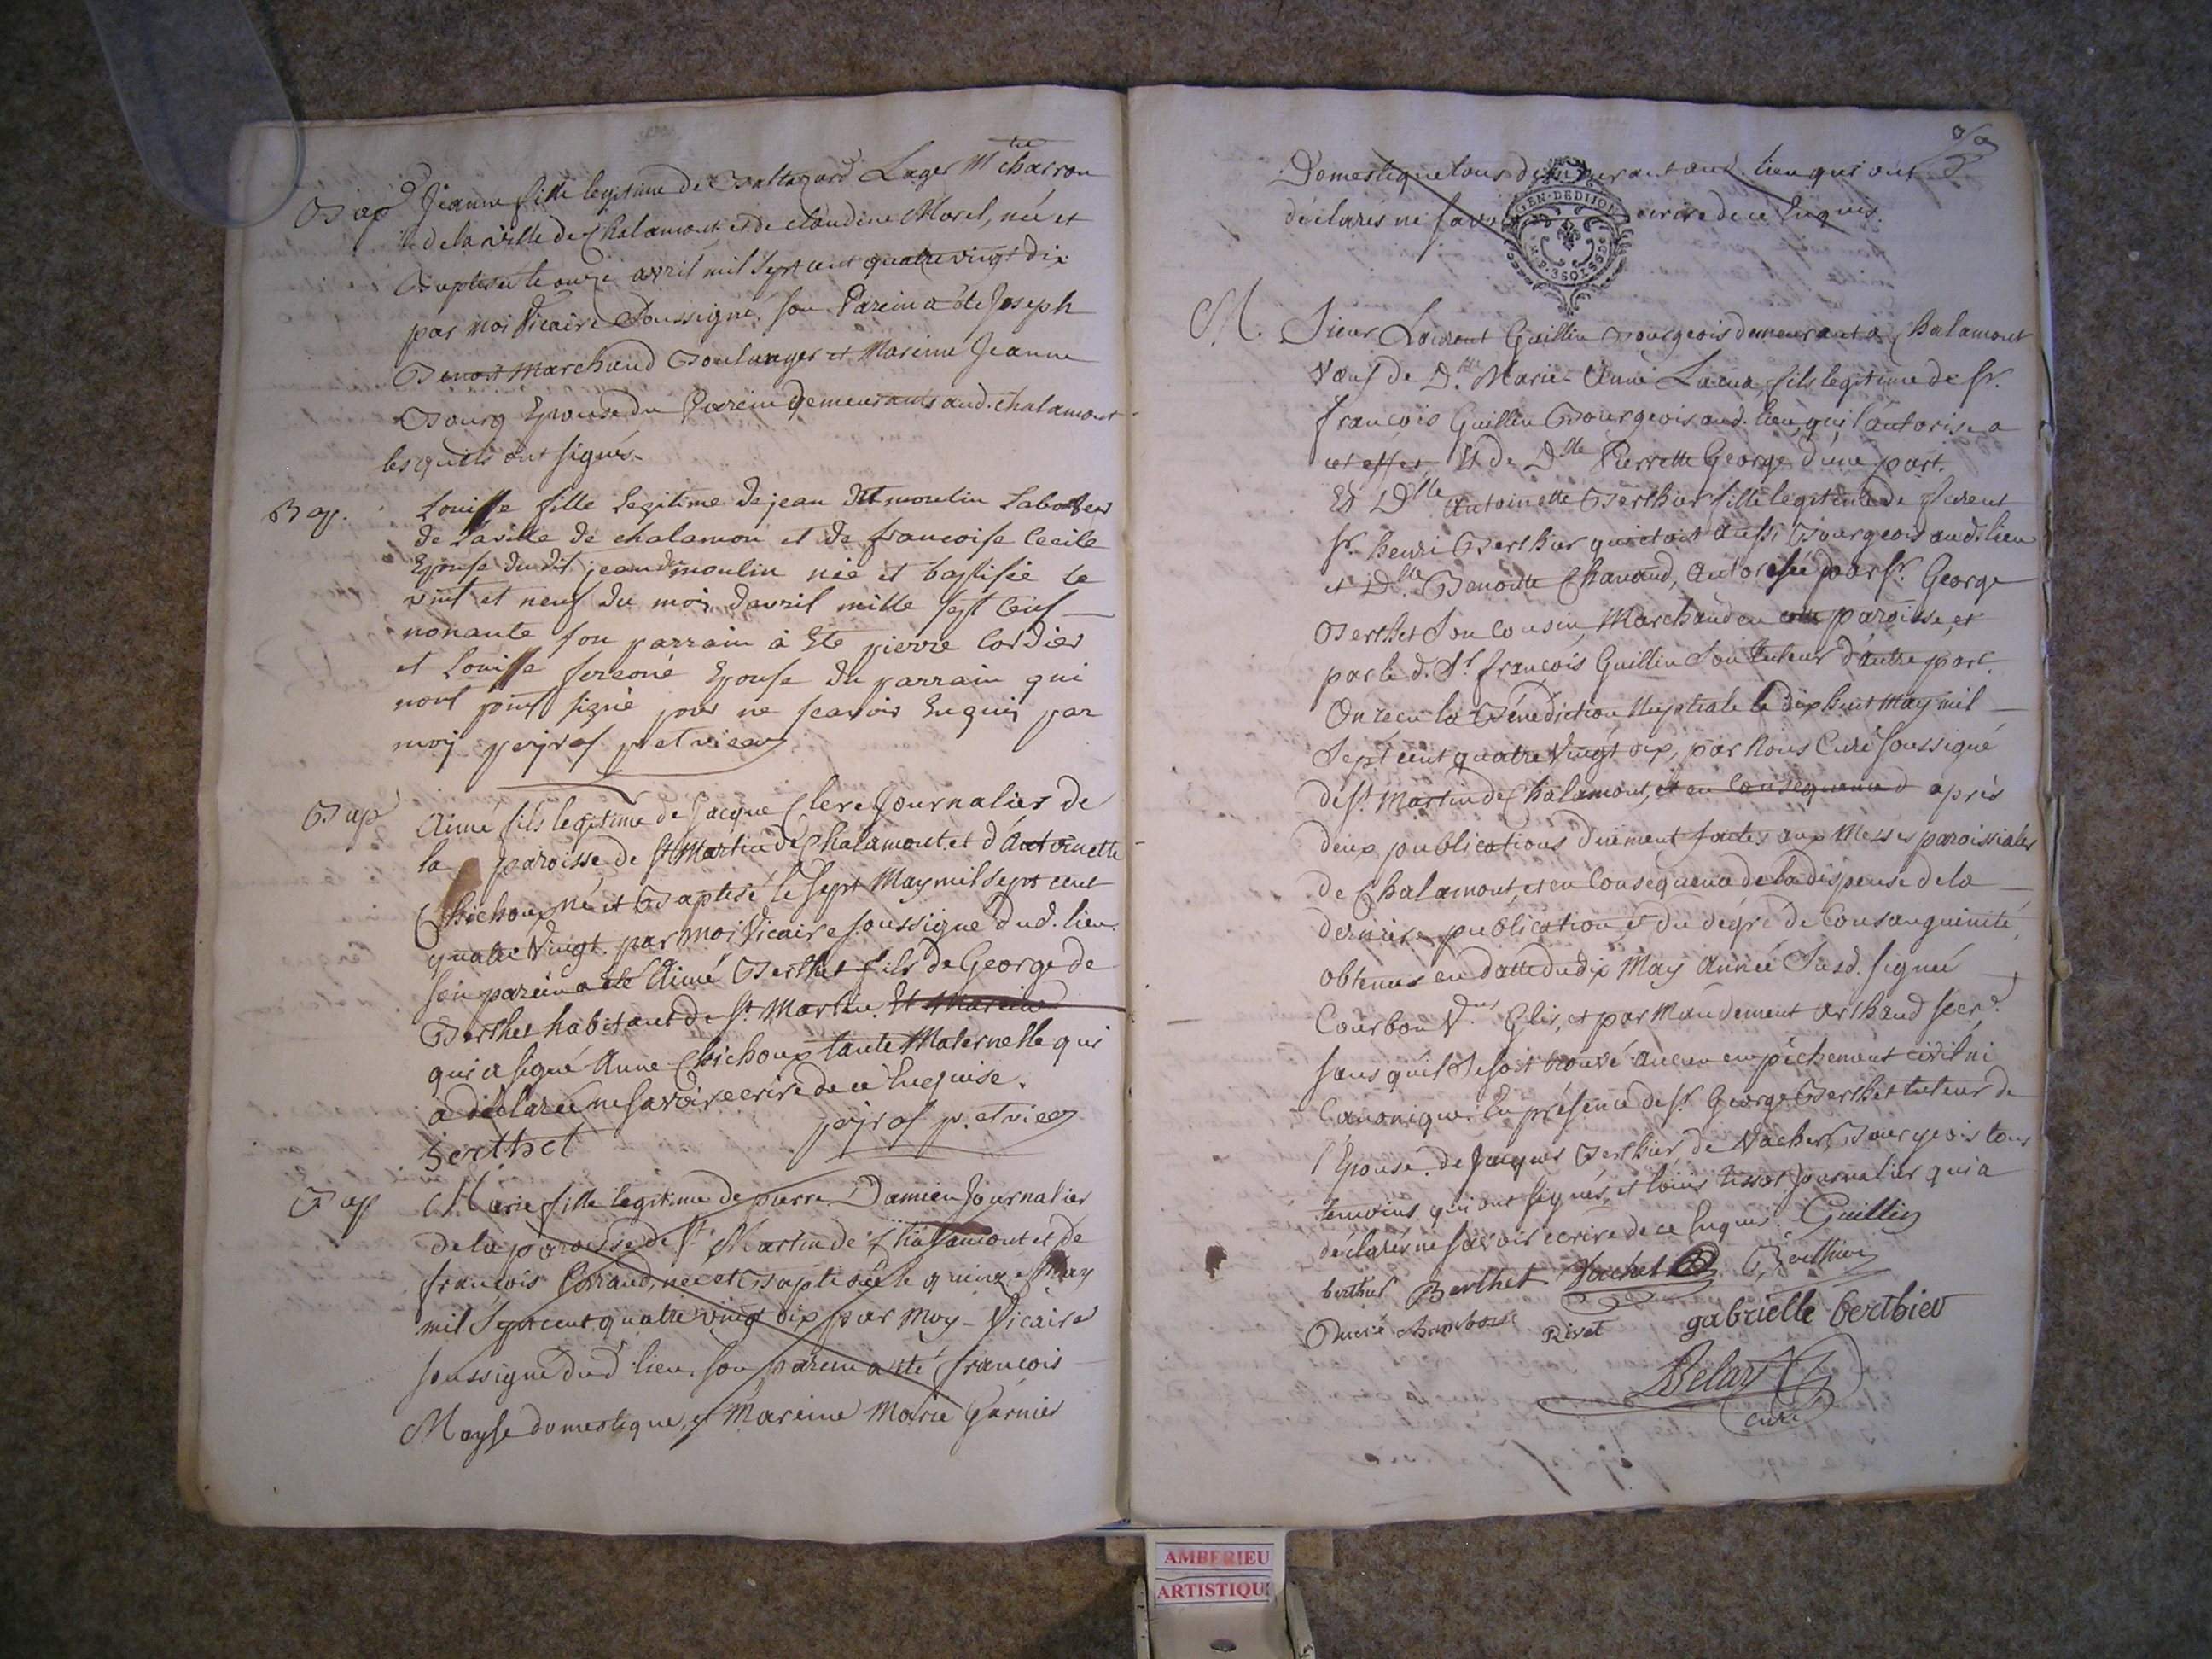 Bap. Jeanne fille legitime de Baltazard Lager Mtre charron
de la ville de Chalamont et de claudine Morel, née et
Baptisée le onze avril mil sept cent quatre vingt dix
par moi Vicaire Soussigné. son Parein a été Joseph
Benoit Marchand Boulanger et Mareine Jeanne
Bourg Epouse du Parein demeurants aud. chalamont
lesquels ont signés.
Bap. Louisse fille Legitime de jean dumoulin Laboureur
de Laville de chalamon et de francoise Cecile
Epouse du dit jean dumoulin née et baptisée le
vint et neuf du mois davril mille sept cens
nonante son parrain à Ete pierre Cordier
et Louisse Epouse du parrain qui
nont point signé pour ne scavoir Enquis par
moy
Bap. Aimé fils legitime de Jacque Clere Journalier de
la paroisse de St Martin de Chalamont et d'Antoinette
Chichoux né et Baptisé le sept May mil sept cent
quatre Vingt. par moi Vicaire soussigné dud. lieu.
son parein a été Aimé Berthet fils de George de
Berthet habitant de St. Martin. Et Mareine
qui a signé Anne Chichoux tante Maternelle qui
a déclarée ne savoir ecrire de ce Enquise.
berthet
Bap Marie fille legitime de pierre Damien Journalier
de la paroisse de St. Martin de Chalamont et de
francois née et Baptisée le quinze May
mil sept cent quatre vingt dix par Moy Vicaire
soussigné dud lieu. son parein a été françois
Moyse domestique, et Mareine Marie Garnier
Domestique tous demeurant aud. lieu qui ont
déclarés ne savoir ecrire de ce Enquis.
GEN. DE DIJON
3 SOLS
M. Sieur Laurent Guillin Bourgeois demeurant a Chalamont
Veuf de Dlle Marie Anne fils legitime de Sr.
françois Guillin Bourgeois aud. lieu, qui l'autorise a
cet effet, Et de Dlle Pierrette George d'une part.
Et Dlle Antoinette Berthier fille legitime de
Sr. henri Berthier qui etoit aussi Bourgeois aud. lieu
et Dlle. Benoitte Chanaud, autorisée par Sr. George
Berthet Son Cousin, Marchand en cette paroisse, et
par le d. Sr françois Guillin Son tuteur d'autre part.
On recu la Bénediction Nuptiale le dix huit May mil
Sept cent quatre Vingt dix, par Nous Curé Soussigné
de St. Martin de Chalamont, et en Consequence après
deux publications duement faites aux Messes paroissiales
de Chalamont, et en Consequence de la dispense de la
derniere publication et du dégré de Consanguinité,
obtenues en datte du dix May Année Susd. Signée
Courbon V. Gler, et par Mandement Arthaud Secre.
sans qu'il se soit trouvé aucun empêchement civil ni
Canonique. En présence de Sr. George Berthet tuteur de
l'Epouse. de Jacques Berthier de Vacher Bourgeois tous
temoins qui ont signés, et loüis tissot Journalier qui a
declaré ne savoir ecrire de ce Enquis. Guillin
berthier Berthet Berthier
Rivet gabrielle berthier
Belart
curé
AMBERIEU
ARTISTIQUE